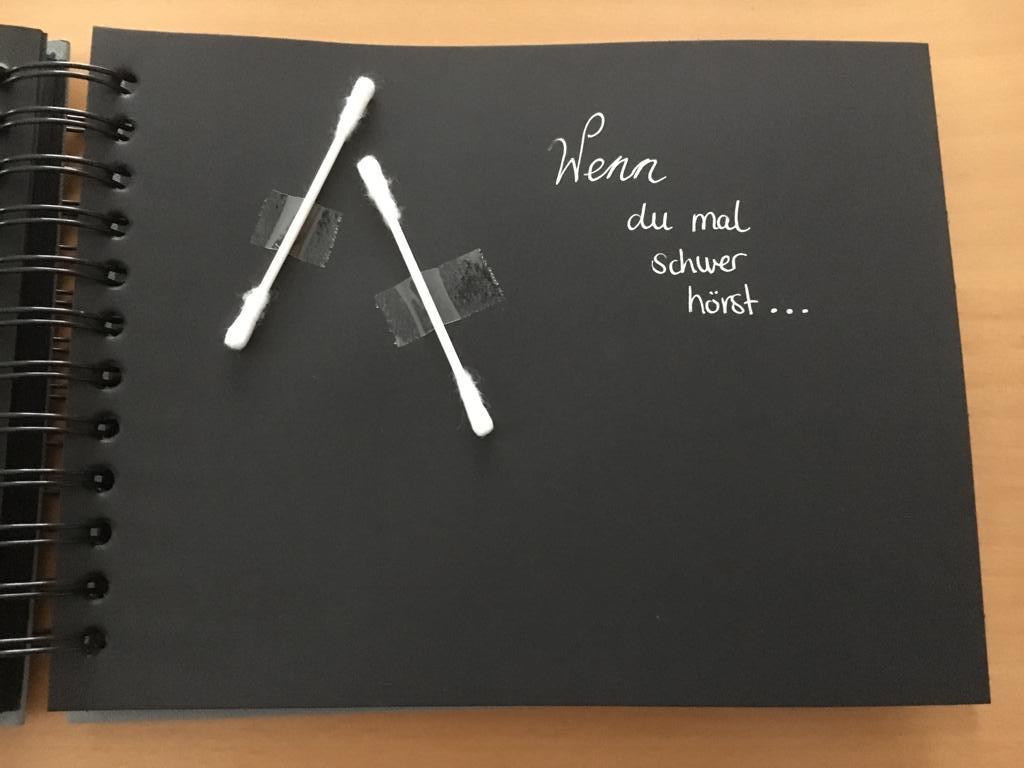 Wenn
du mal
schwer
hörst...